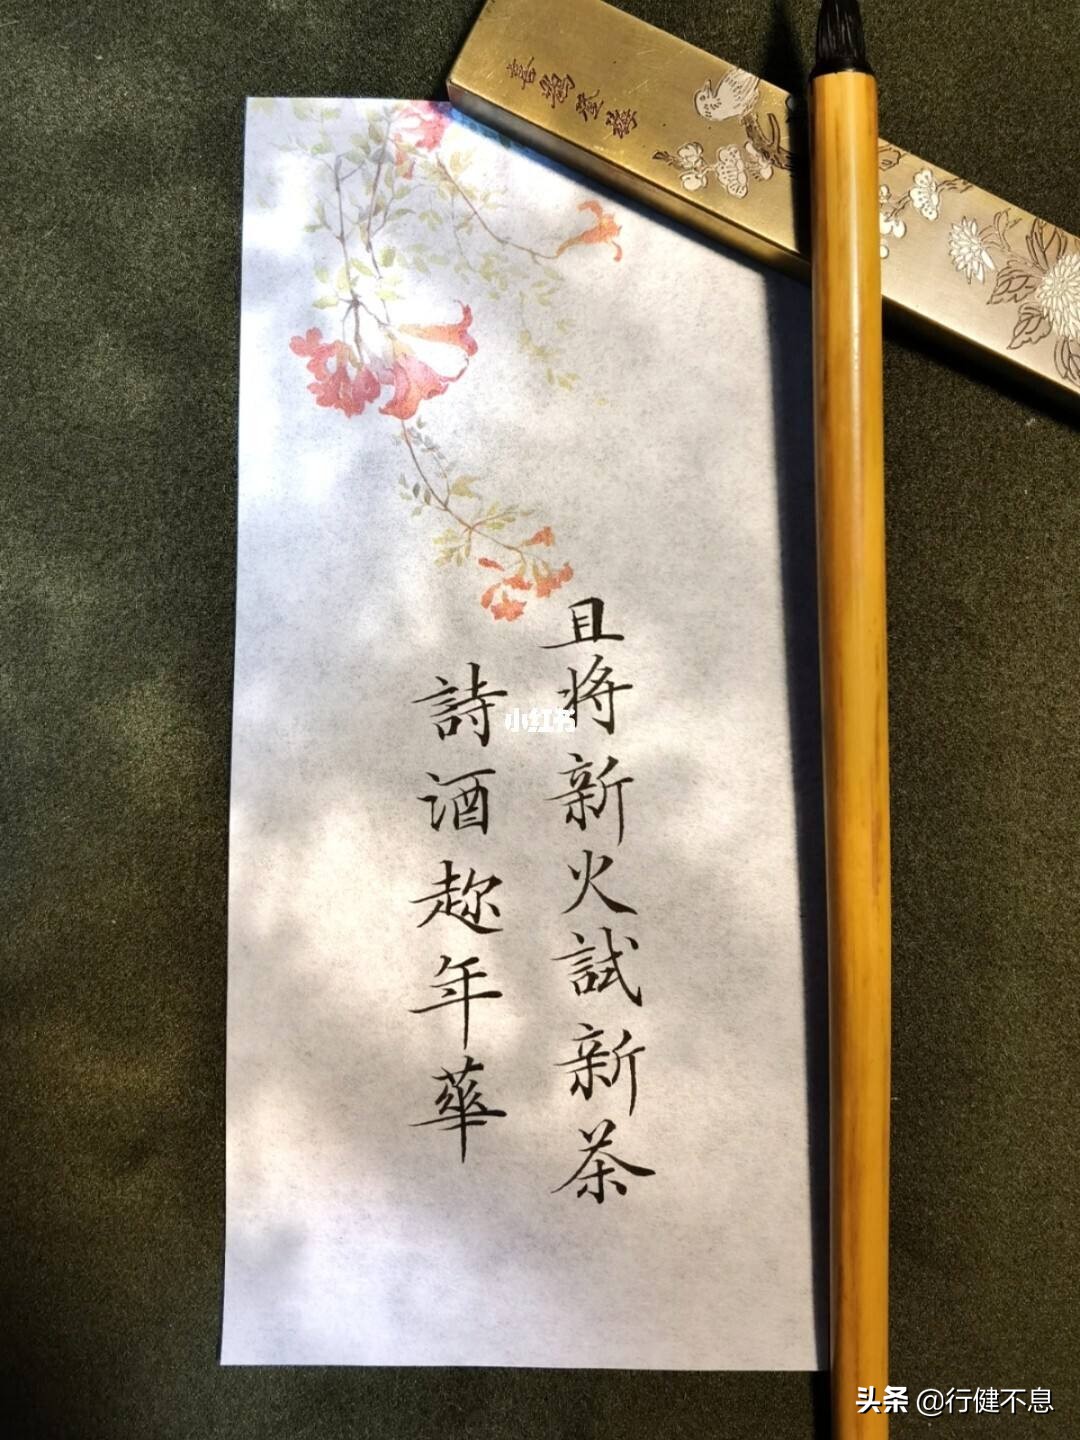 且将新火試新茶
詩酒趂年華
小红书
头条 @行健不息